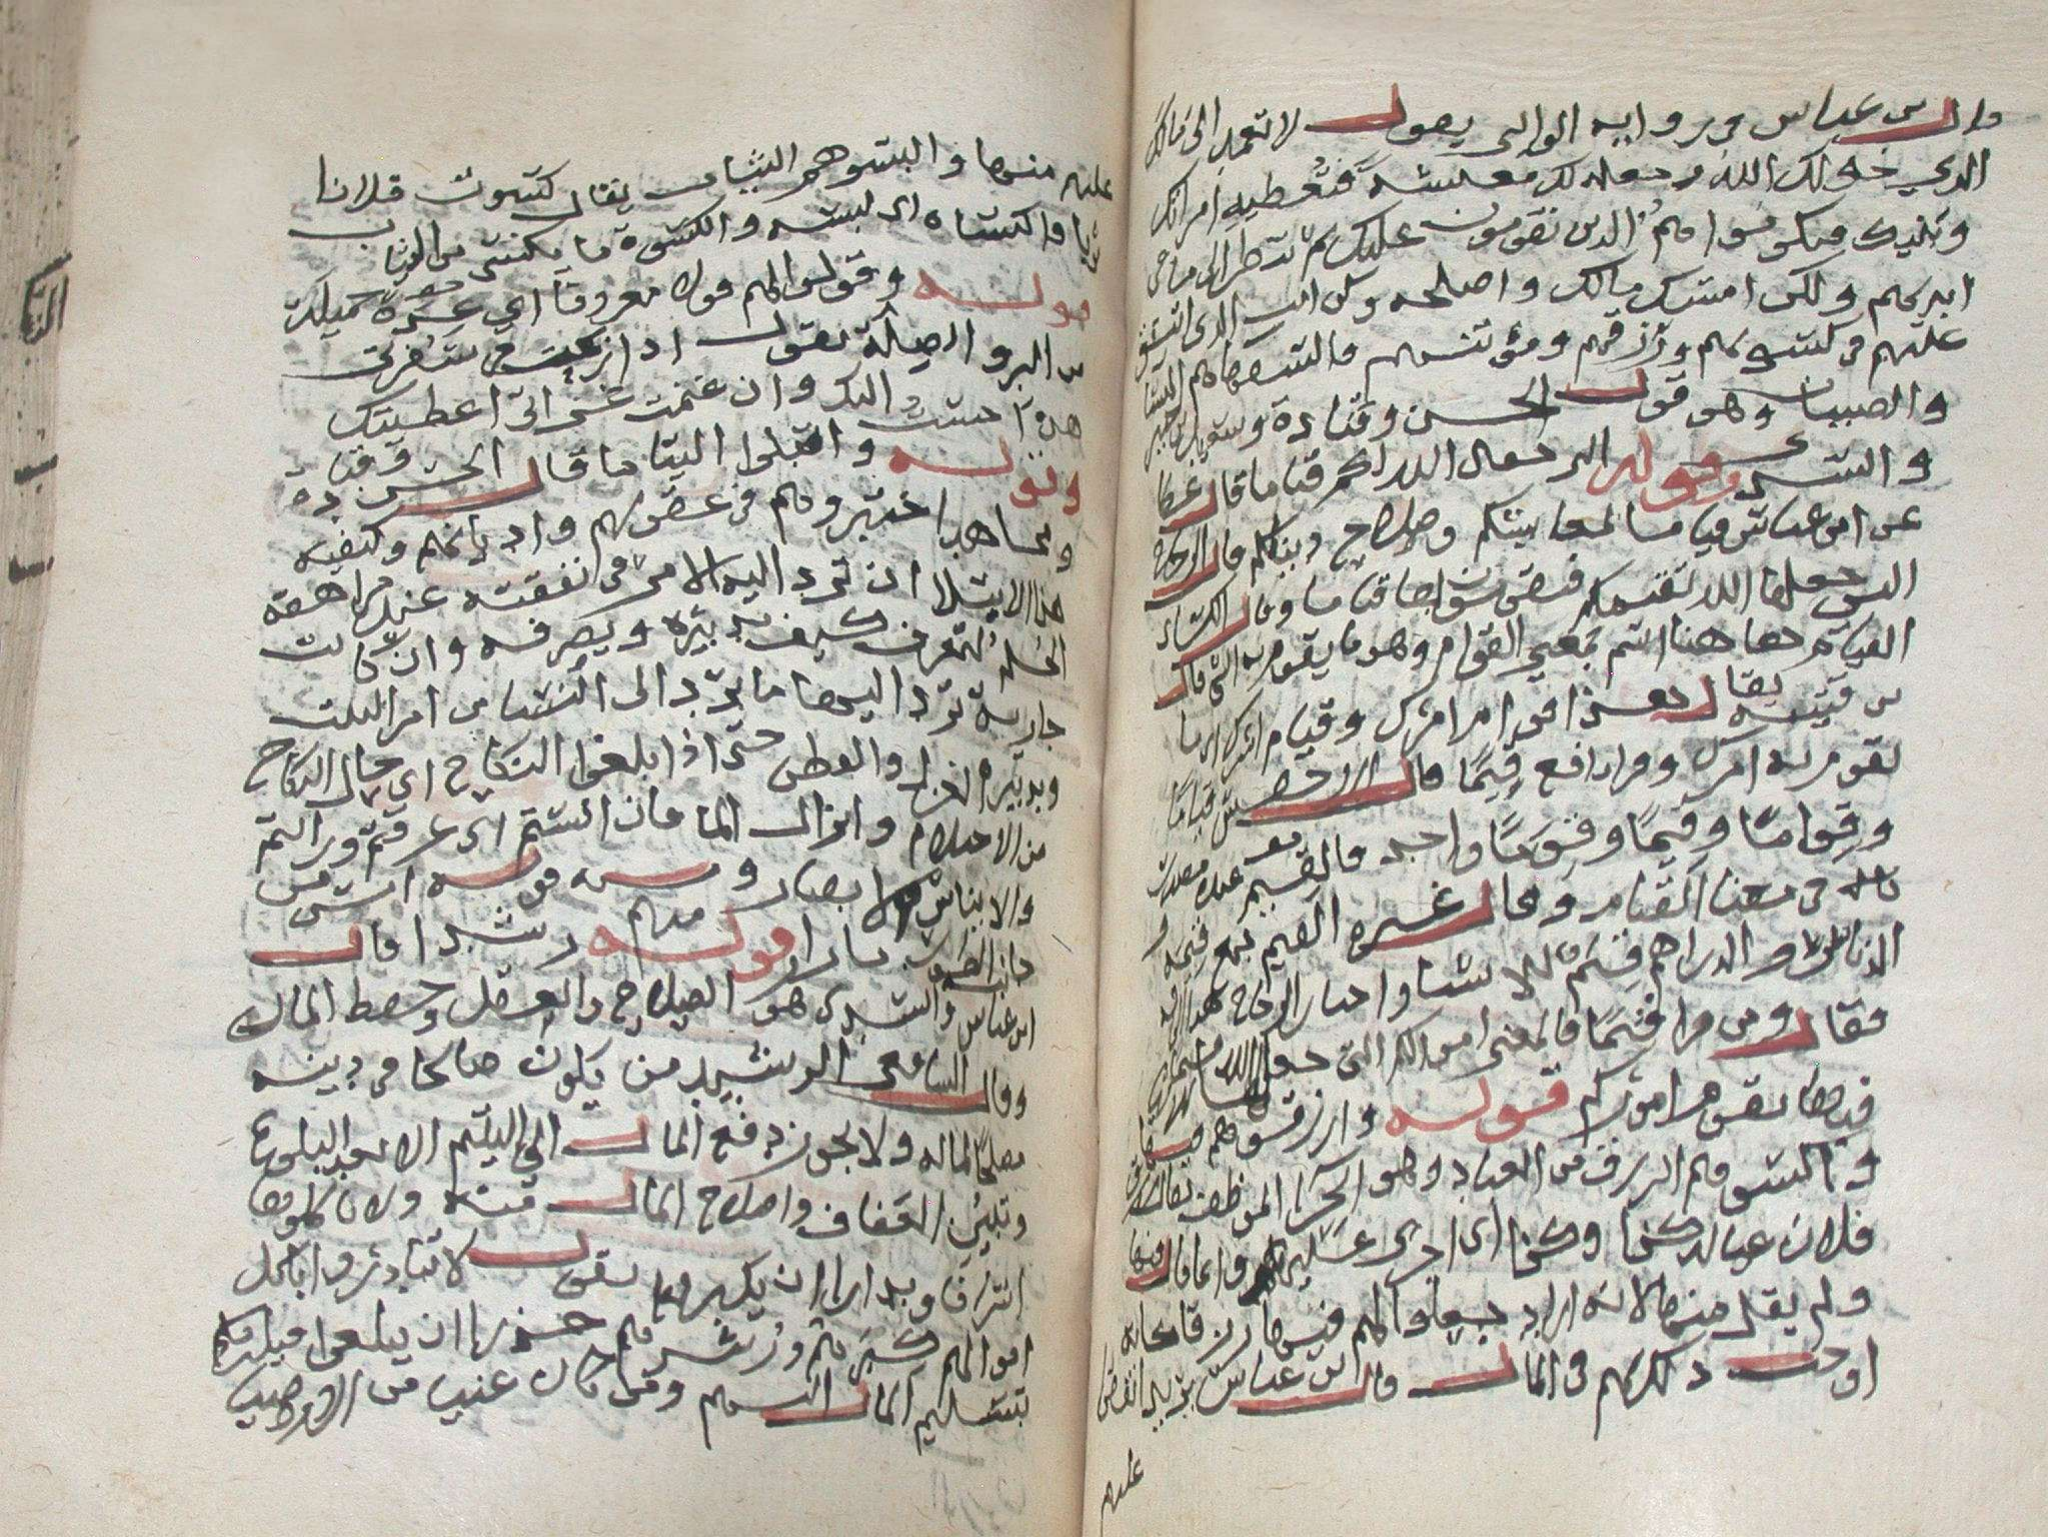 قال ابن عباس في رواية الوالبي يقول لا تعمد الى مالك
الذي خولك الله وجعله لك معيشة فتعطيه امراتك
وبنيك فيكونوا هم الذين يقومون عليك ثم تنظر الى ما في
ايديهم ولكن امسك مالك واصلحه وكن انت الذي تنفق
عليهم في كسوتهم ورزقهم ومؤنتهم فالسفهاهم النسا
والصبيان وهو قول الحسن وقتادة وسعيد بن جبير
والسدي وقوله التي جعل الله لكم قياما قال عطا
عن ابن عباس قياما لمعايشكم وصلاح دينكم قال الزجاج
التي جعلها الله تقيمكم فتقومون بها قياما وقال الكسائي
القيام هاهنا اسم بمعنى القوام وهو ما يقوم به الشي قال
بن قتيبة يقال هذا قوام امرك وقيام امرك اي ما
يقوم به امرك وقرا نافع قيما قال الاخفش قياما
وقواما وقيما وقوما واحد فالقيم عنده مصدر
في معنا القيام وقال غيره القيم جمع قيمة
الدنانير والدراهم قيم للاشيا واختار الزجاج هذا
فقال ومن قرا قيما فالمعنى اموالكم التي جعلها الله قيما للاشيا
فبها يقوم امركم قوله وارزقوهم فيها
واكسوهم الرزق من العباد وهو الاجرا الموظف يقال رزق
فلان عياله كذا وكذا اي اجرى عليهم وانما قال فيها
ولم يقل منها لانه اراد جعلوا لهم فيها رزقا كانه
اوجب ذلك لهم في المال قال ابن عباس يريد انفق
عليهم
عليهم منها والبسوهم الثياب يقال كسوت فلانا
ثوبا فاكتساه اي لبسه والكسوة ما يكتسى من الثياب
قوله وقولوا لهم قولا معروفا اي عدة جميلة
من البر والصلة يقول اذا ربحت في سفرتي
هذه احسنت اليك وان غنمت في غزاتي اعطيتك
وقوله وابتلوا اليتاما قال الحسن وقتادة
ومجاهد اختبروهم في عقولهم واديانهم وكيفية
هذا الابتلا ان ترد اليه الامر في نفقته عند مراهقة
الحلم لتعرف كيف تدبيره ويصرفه وان كانت
جارية ترد اليها ما يرد الى النسا من امر البيت
وتدبير الغزل والقطن حتى اذا بلغوا النكاح اي حال النكاح
من الاحتلام وانزال الما فان انستم اي عرفتم ورايتم
والايناس الابصار ومنه قوله انس من
جانب الطور نارا قوله منهم رشدا قال
ابن عباس والسدي هو الصلاح والعقل وحفظ المال
وقال الشافعي الرشيد من يكون صالحا في دينه
مصلحا لماله ولا يجوز دفع المال الى اليتيم الا بعد البلوغ
وتبين العفاف واصلاح المال منه ولا تاكلوها
اسرافا وبدارا ان يكبروا يقول لا تبادروا باكل
اموالهم كبرهم ورشدهم حذرا ان يبلغوا فيلزمكم
بتسليم المال اليهم ومن كان غنيا من الاوصيا